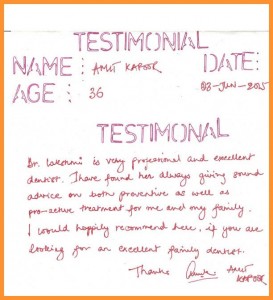 TESTIMONIAL
NAME : AMIT KAPOOR DATE:
03-JUN-2015
AGE : 36
TESTIMONAL
Dr. Lakshmi is very professional and excellent
dentist. I have found her always giving sound
advice on both preventive as well as
pro-active treatment for me and my family.
I would happily recommend here, if you are
looking for an excellent family dentist.
Thanks AMIT
KAPOOR